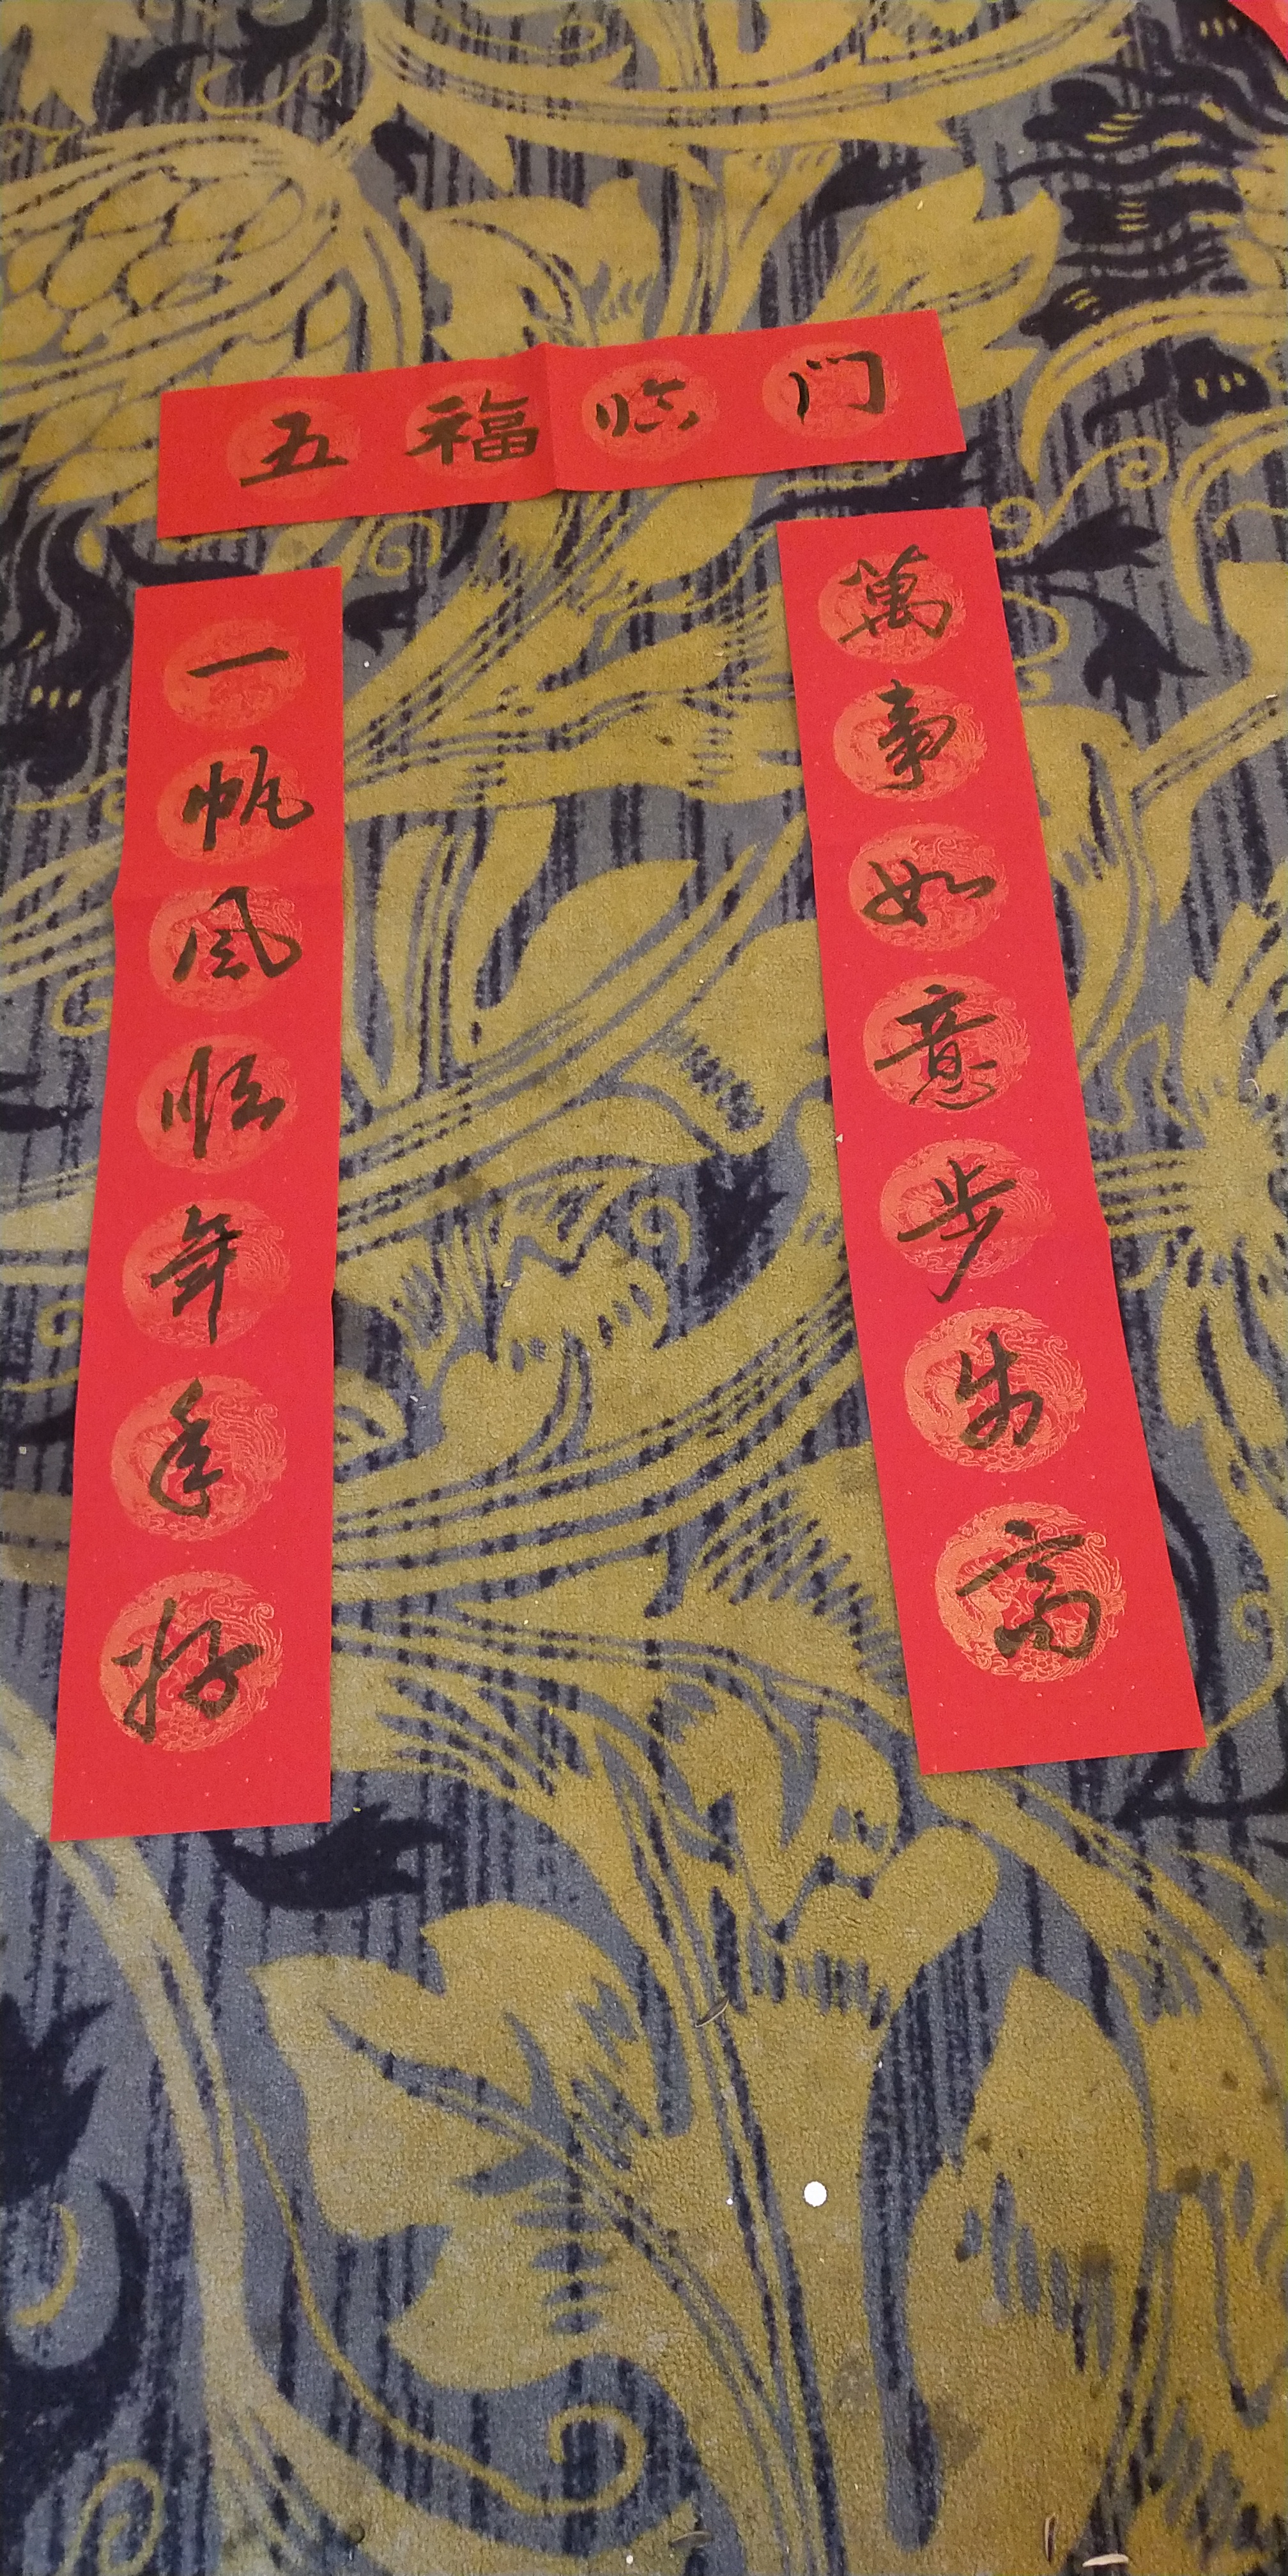 五福临门
一帆风顺年年好
萬事如意步步高